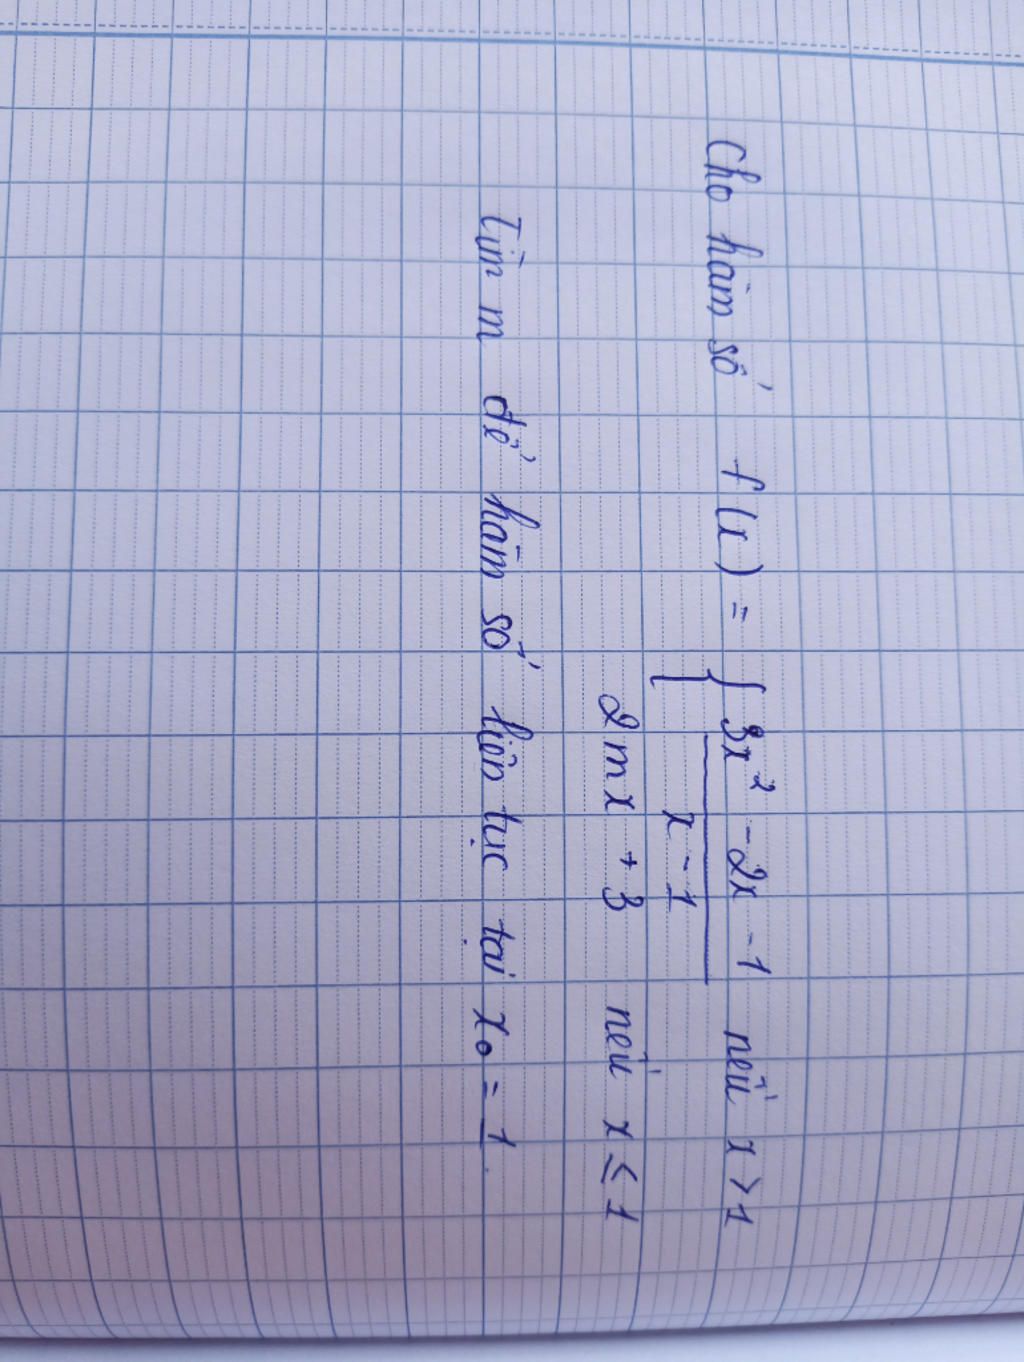 Cho hàm số f(x) = { 3x² - 2x - 1 nếu x > 1
x - 1
2mx + 3 nếu x ≤ 1
Tìm m để hàm số liên tục tại x₀ = 1.